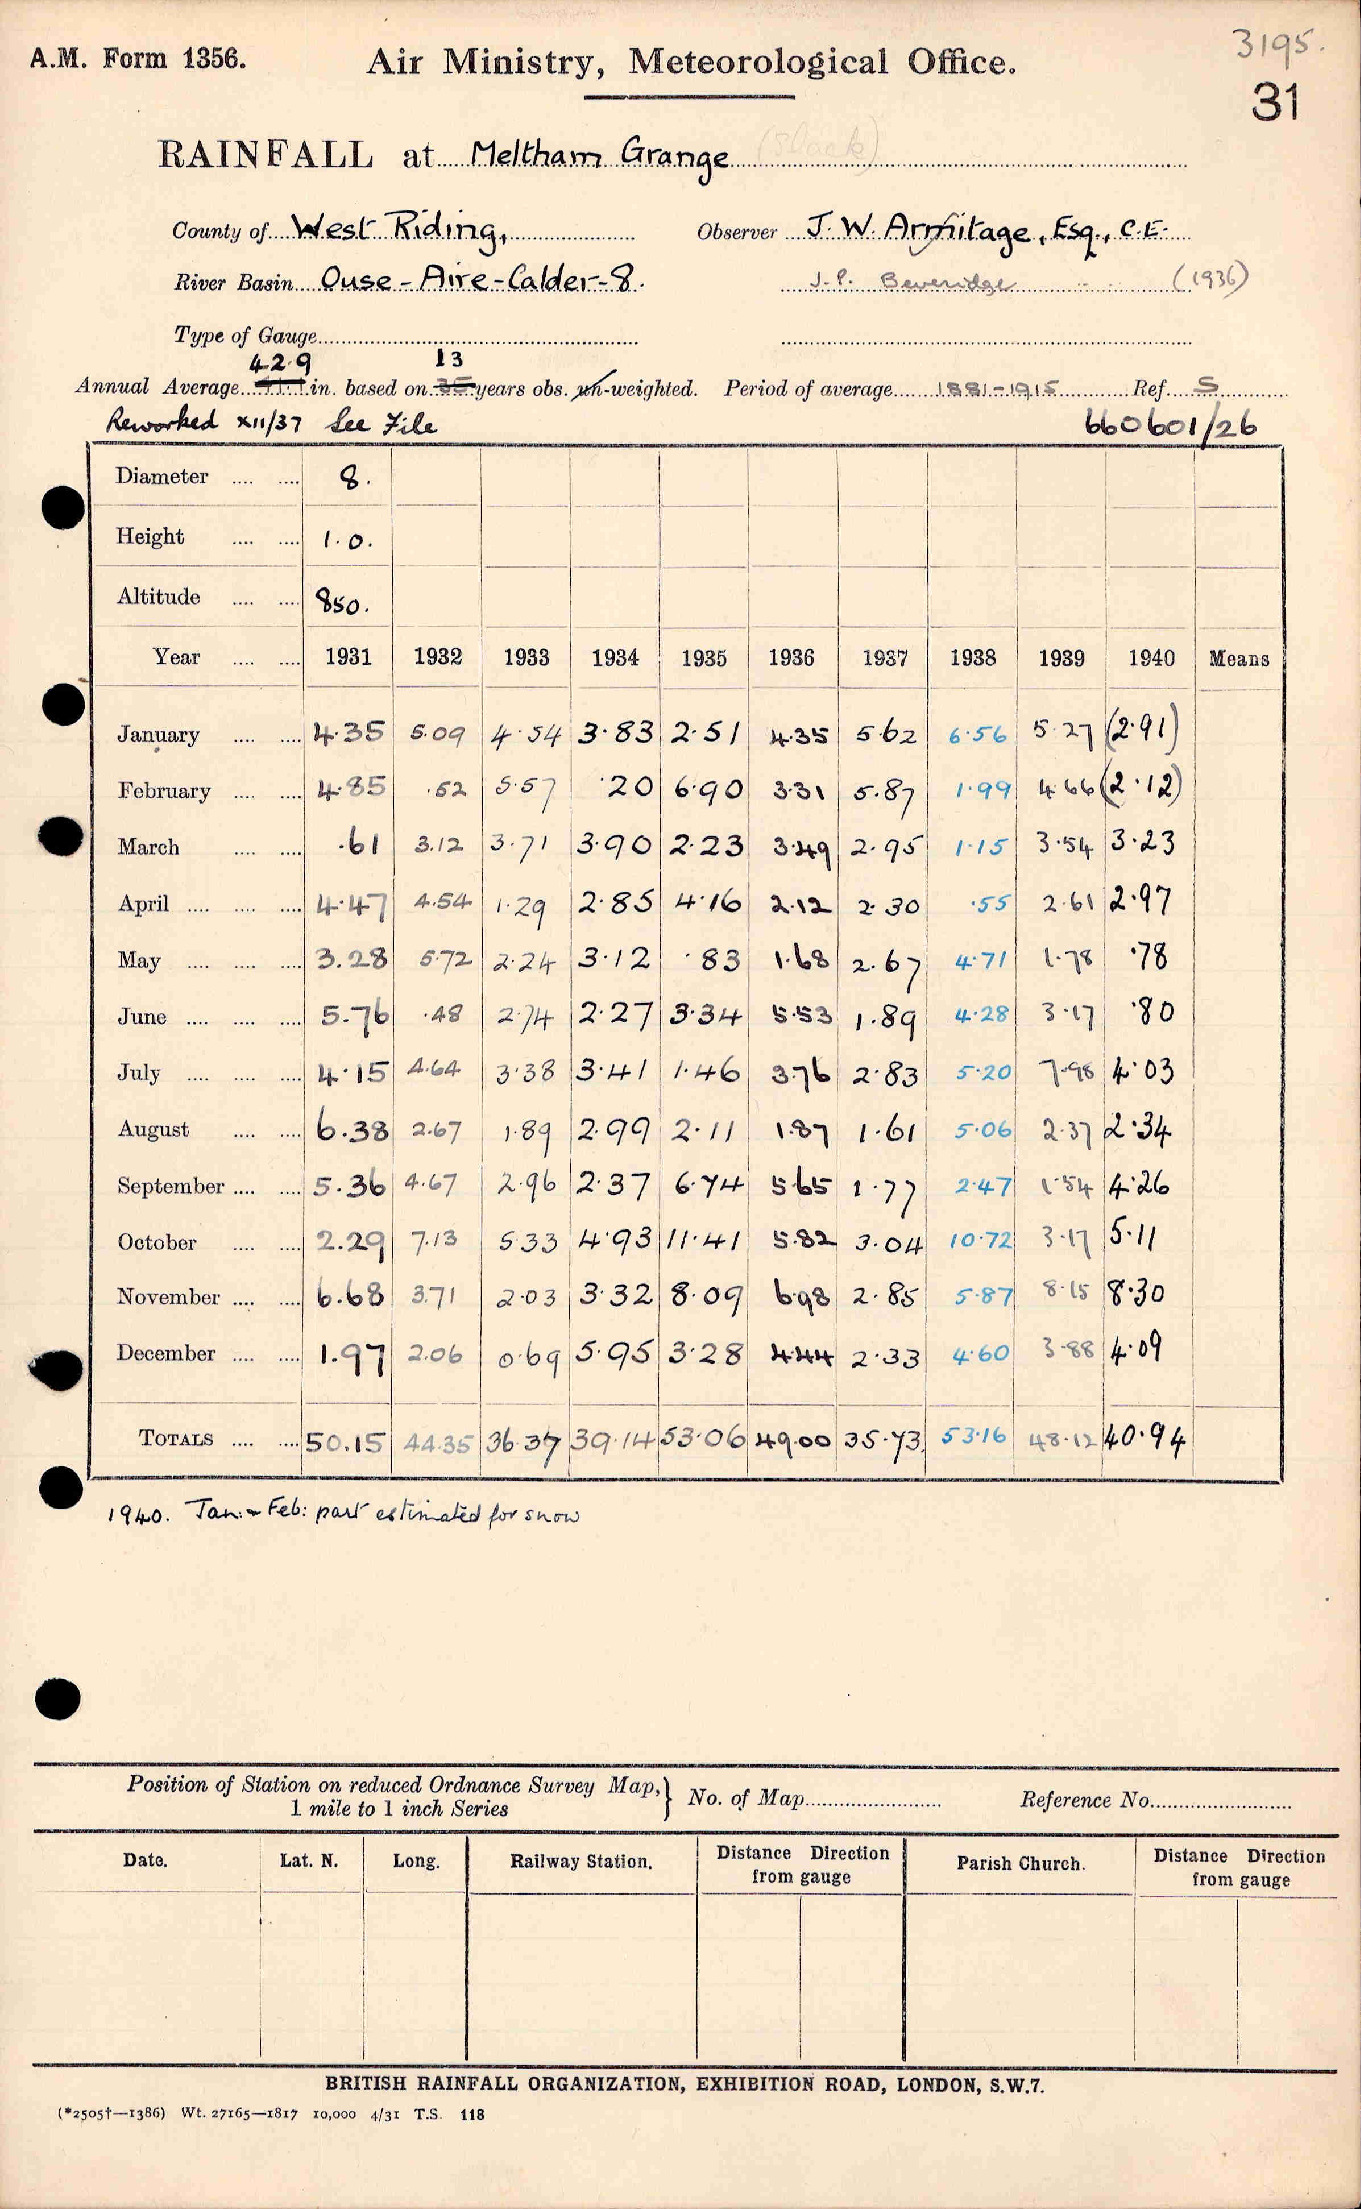 3195.
A.M. Form 1356. Air Ministry, Meteorological Office.
31
RAINFALL at Meltham Grange (Slack)
County of West Riding, Observer J. W. Armitage, Esq., C.E.
River Basin Ouse - Aire - Calder - 8. J. P. Beveridge (1936)
Type of Gauge
42.9 13
Annual Average in. based on 35 years obs. un-weighted. Period of average 1881-1915 Ref. S
Reworked XII/37 See File 660601/26
Diameter .... .... 8.
Height .... .... 1.0.
Altitude .... .... 850.
Year .... .... 1931 1932 1933 1934 1935 1936 1937 1938 1939 1940 Means
January .... .... 4.35 5.09 4.54 3.83 2.51 4.35 5.62 6.56 5.27 (2.91)
February .... .... 4.85 .52 5.57 .20 6.90 3.31 5.87 1.99 4.66 (2.12)
March .... .... .61 3.12 3.71 3.90 2.23 3.49 2.95 1.15 3.54 3.23
April .... .... .... 4.47 4.54 1.29 2.85 4.16 2.12 2.30 .55 2.61 2.97
May .... .... .... 3.28 5.72 2.24 3.12 .83 1.68 2.67 4.71 1.78 .78
June .... .... .... 5.76 .48 2.74 2.27 3.34 5.53 1.89 4.28 3.17 .80
July .... .... .... 4.15 4.64 3.38 3.41 1.46 3.76 2.83 5.20 7.98 4.03
August .... .... 6.38 2.67 1.89 2.99 2.11 1.87 1.61 5.06 2.37 2.34
September .... .... 5.36 4.67 2.96 2.37 6.74 5.65 1.77 2.47 1.54 4.26
October .... .... 2.29 7.13 5.33 4.93 11.41 5.82 3.04 10.72 3.17 5.11
November .... .... 6.68 3.71 2.03 3.32 8.09 6.98 2.85 5.87 8.15 8.30
December .... .... 1.97 2.06 0.69 5.95 3.28 4.44 2.33 4.60 3.88 4.09
TOTALS .... .... 50.15 44.35 36.37 39.14 53.06 49.00 35.73 53.16 48.12 40.94
1940. Jan: - Feb: part estimated for snow
Position of Station on reduced Ordnance Survey Map, } No. of Map Reference No.
1 mile to 1 inch Series
Date. Lat. N. Long. Railway Station. Distance Direction from gauge Parish Church. Distance Direction from gauge
BRITISH RAINFALL ORGANIZATION, EXHIBITION ROAD, LONDON, S.W.7.
(*2505†—1386) Wt. 27165—1817 10,000 4/31 T.S. 118